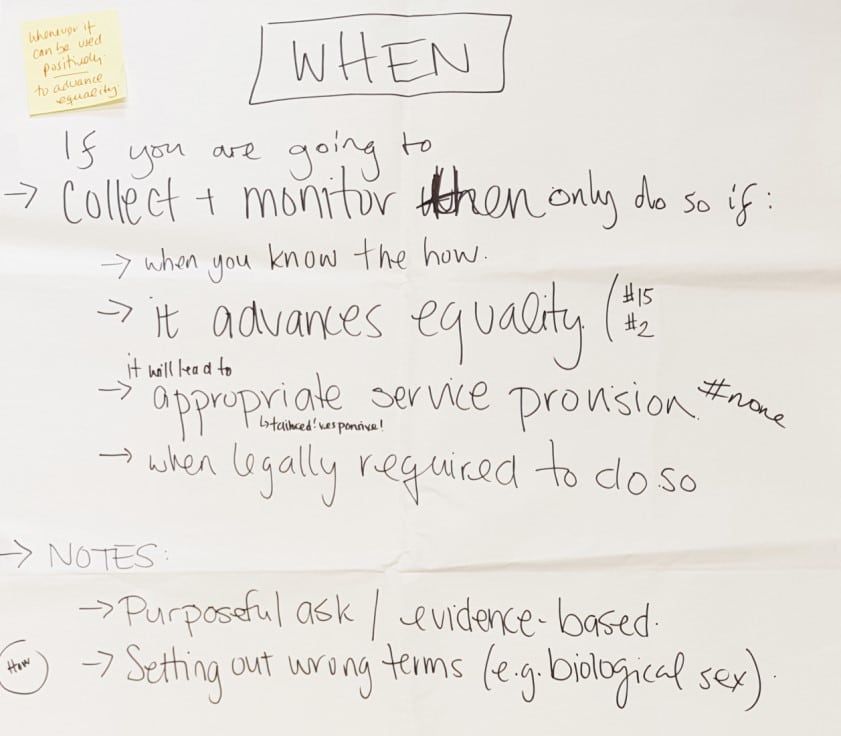 whenever it
can be used
positively
to advance
equality.
WHEN
If you are going to
→ Collect + monitor then only do so if:
→ when you know the how.
→ it advances equality. (#15
#2
it will lead to
→ appropriate service provision. #none
↳ tailored! responsive!
→ when legally required to do so
→ NOTES:
→ Purposeful ask / evidence-based.
How
→ Setting out wrong terms (e.g. biological sex).